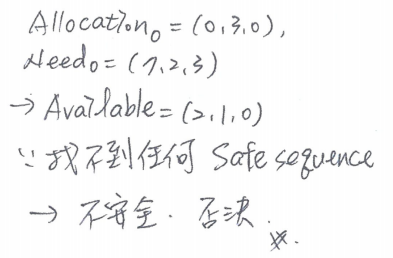 Allocation₀ = (0,3,0),
Need₀ = (7,2,3)
→ Available = (2,1,0)
∵ 找不到任何 Safe sequence
→ 不安全. 否決.
※.